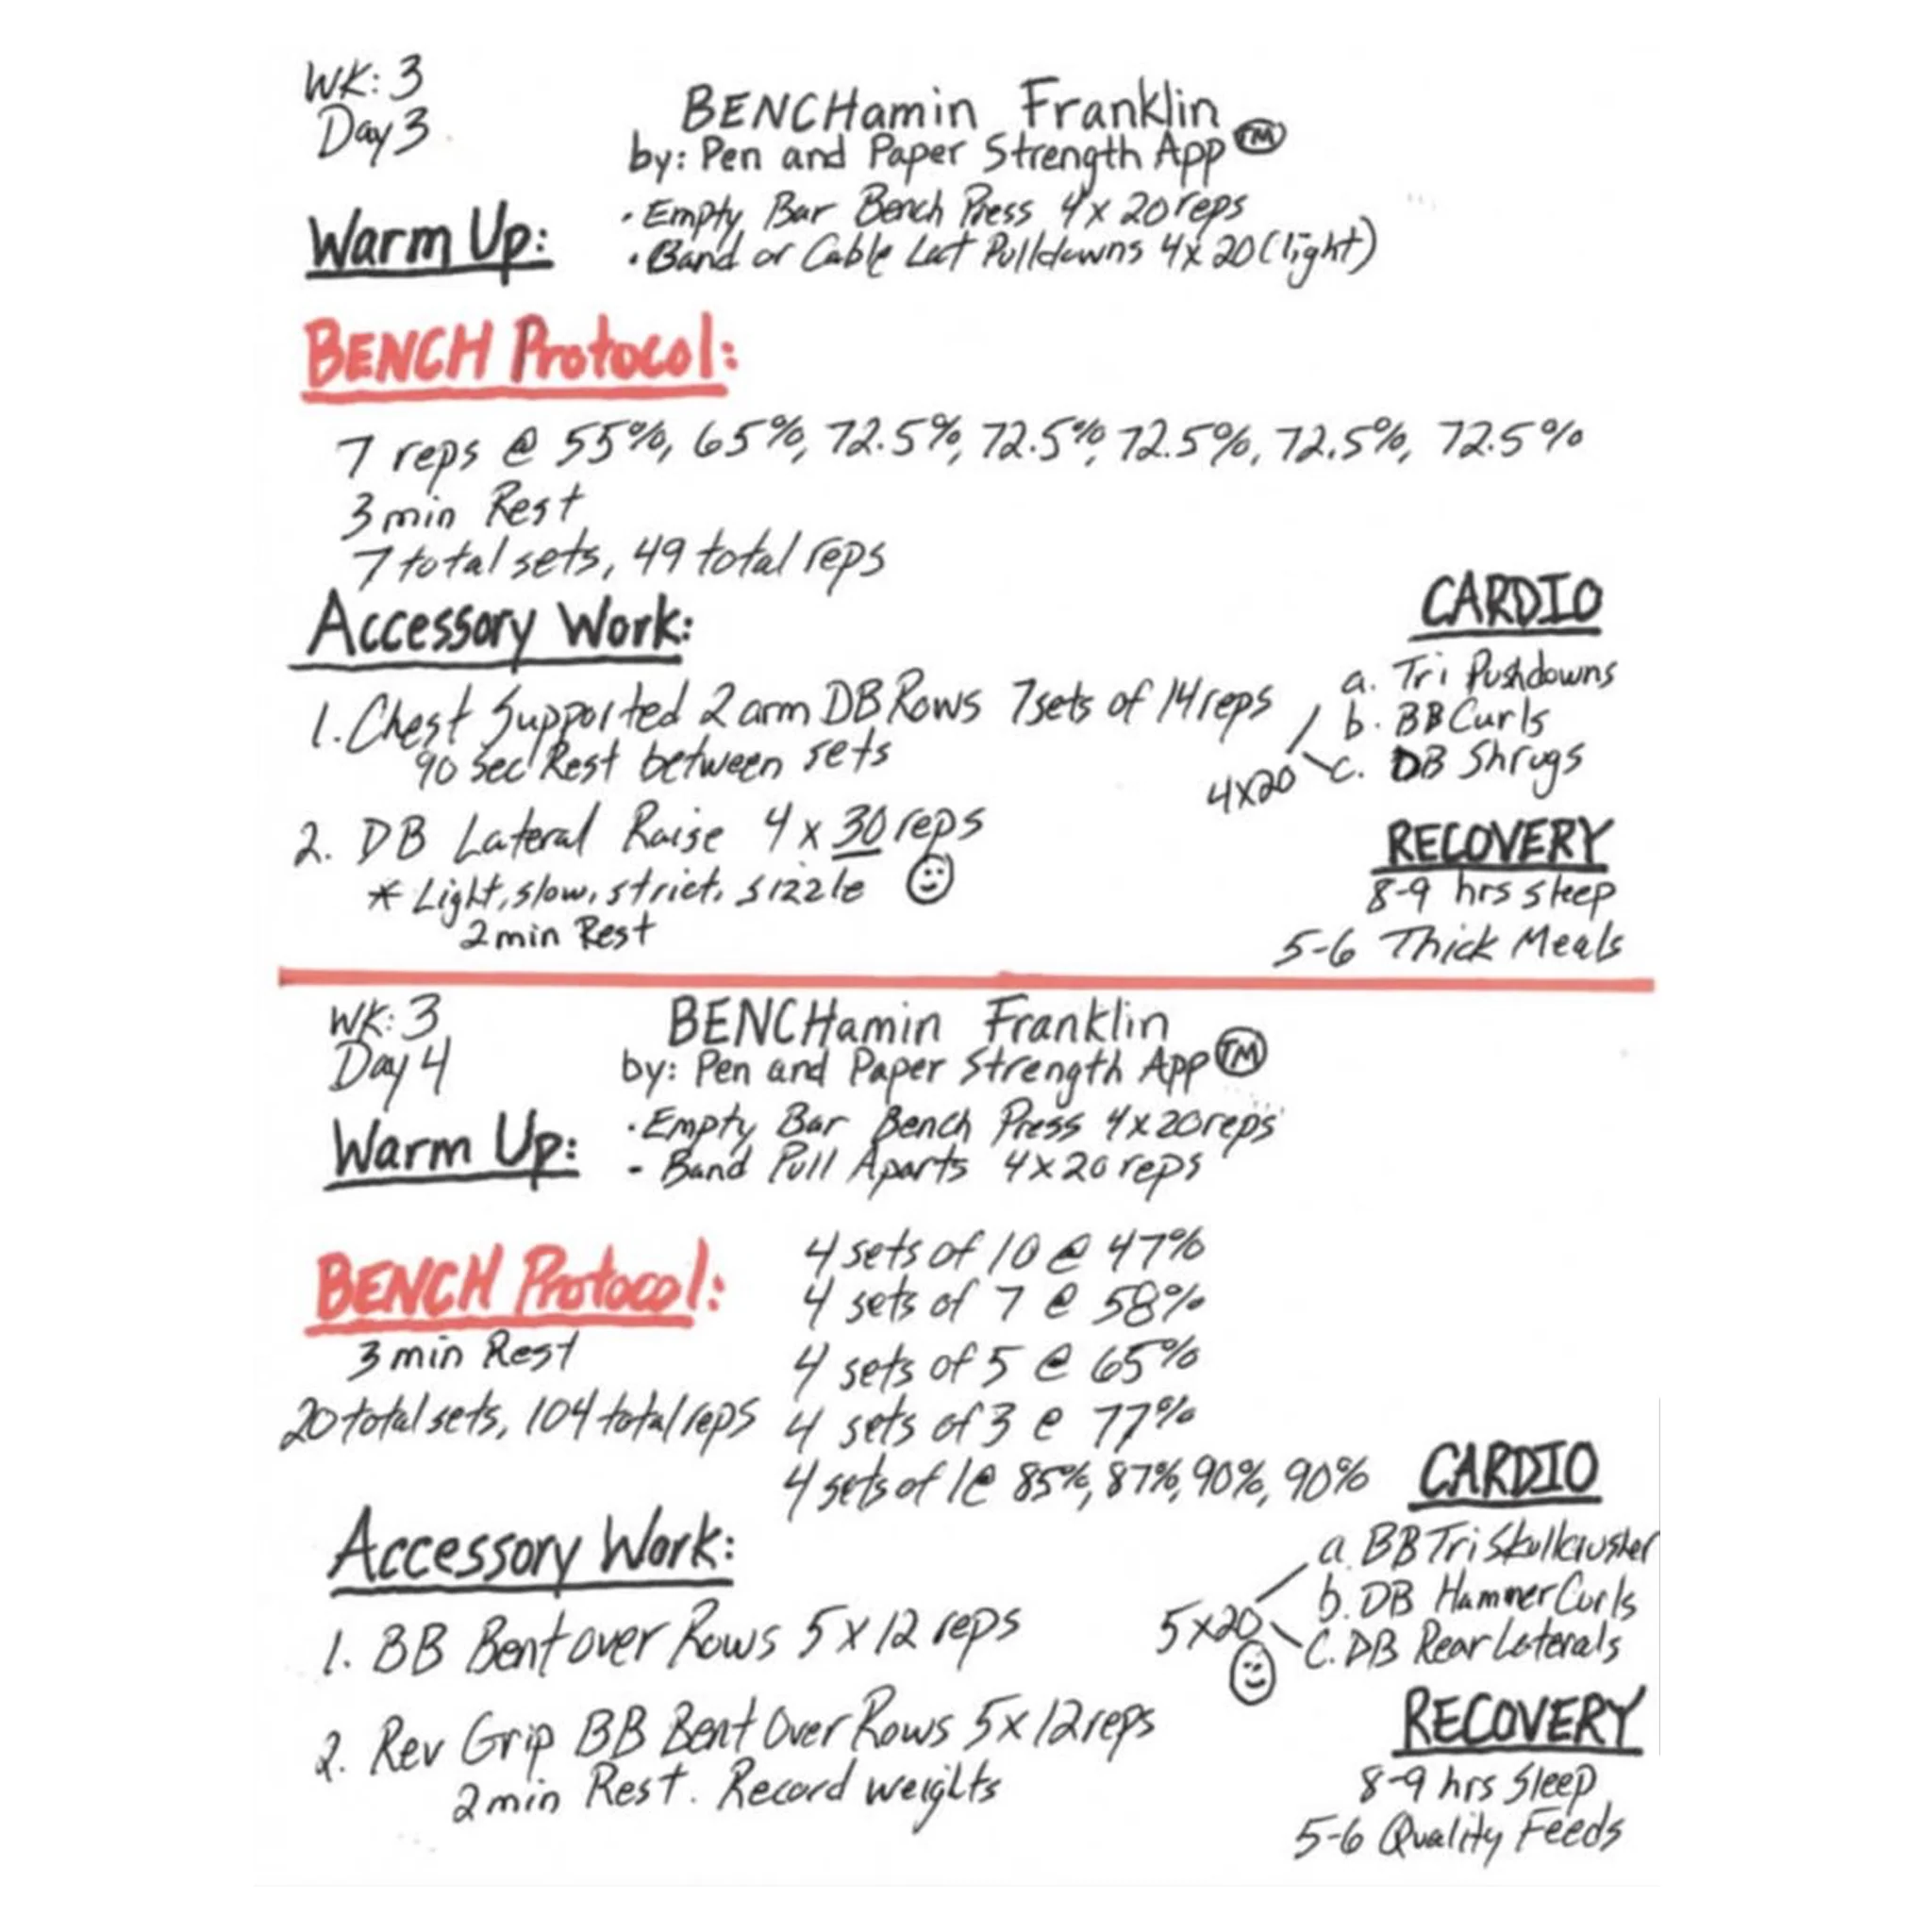 WK: 3
Day 3
BENCHamin Franklin
by: Pen and Paper Strength App TM
Warm Up:
• Empty Bar Bench Press 4 x 20 reps
• Band or Cable Lat Pulldowns 4x20 (light)
BENCH Protocol:
7 reps @ 55%, 65%, 72.5%, 72.5%, 72.5%, 72.5%, 72.5%
3 min Rest
7 total sets, 49 total reps
Accessory Work:
1. Chest Supported 2 arm DB Rows 7 sets of 14 reps
90 sec Rest between sets
2. DB Lateral Raise 4 x 30 reps
* Light, slow, strict, sizzle
2 min Rest
CARDIO
a. Tri Pushdowns
b. BB Curls
4x20
c. DB Shrugs
RECOVERY
8-9 hrs sleep
5-6 Thick Meals
WK: 3
Day 4
BENCHamin Franklin
by: Pen and Paper Strength App TM
Warm Up:
• Empty Bar Bench Press 4x20 reps
- Band Pull Aparts 4x20 reps
BENCH Protocol:
3 min Rest
20 total sets, 104 total reps
4 sets of 10 @ 47%
4 sets of 7 @ 58%
4 sets of 5 @ 65%
4 sets of 3 @ 77%
4 sets of 1 @ 85%, 87%, 90%, 90%
Accessory Work:
1. BB Bent over Rows 5 x 12 reps
2. Rev Grip BB Bent Over Rows 5x12 reps
2 min Rest. Record weights
CARDIO
a. BB Tri Skullcrusher
b. DB Hammer Curls
5x20
C. DB Rear Laterals
RECOVERY
8-9 hrs Sleep
5-6 Quality Feeds